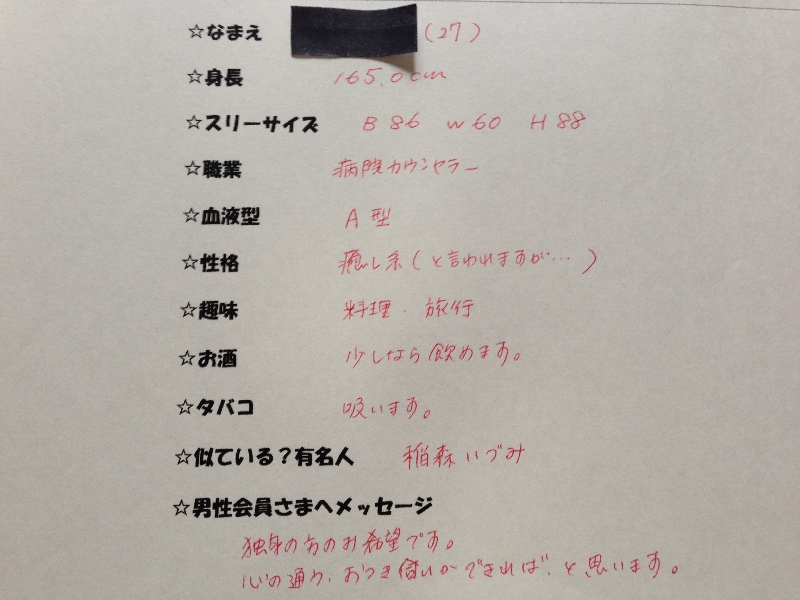 ☆なまえ (27)
☆身長 165.0cm
☆スリーサイズ B 86 W 60 H 88
☆職業 病院カウンセラー
☆血液型 A型
☆性格 癒し系(と言われますが…)
☆趣味 料理・旅行
☆お酒 少しなら飲めます。
☆タバコ 吸います。
☆似ている?有名人 稲森いづみ
☆男性会員さまへメッセージ
独身の方のみ希望です。
心の通う、おつき合いができれば、と思います。